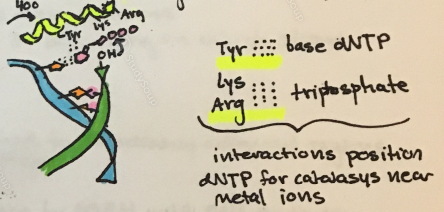 400
Tyr Lys Arg
OH
Tyr base dNTP
Lys
Arg triphosphate
interactions position
dNTP for catalasys near
metal ions